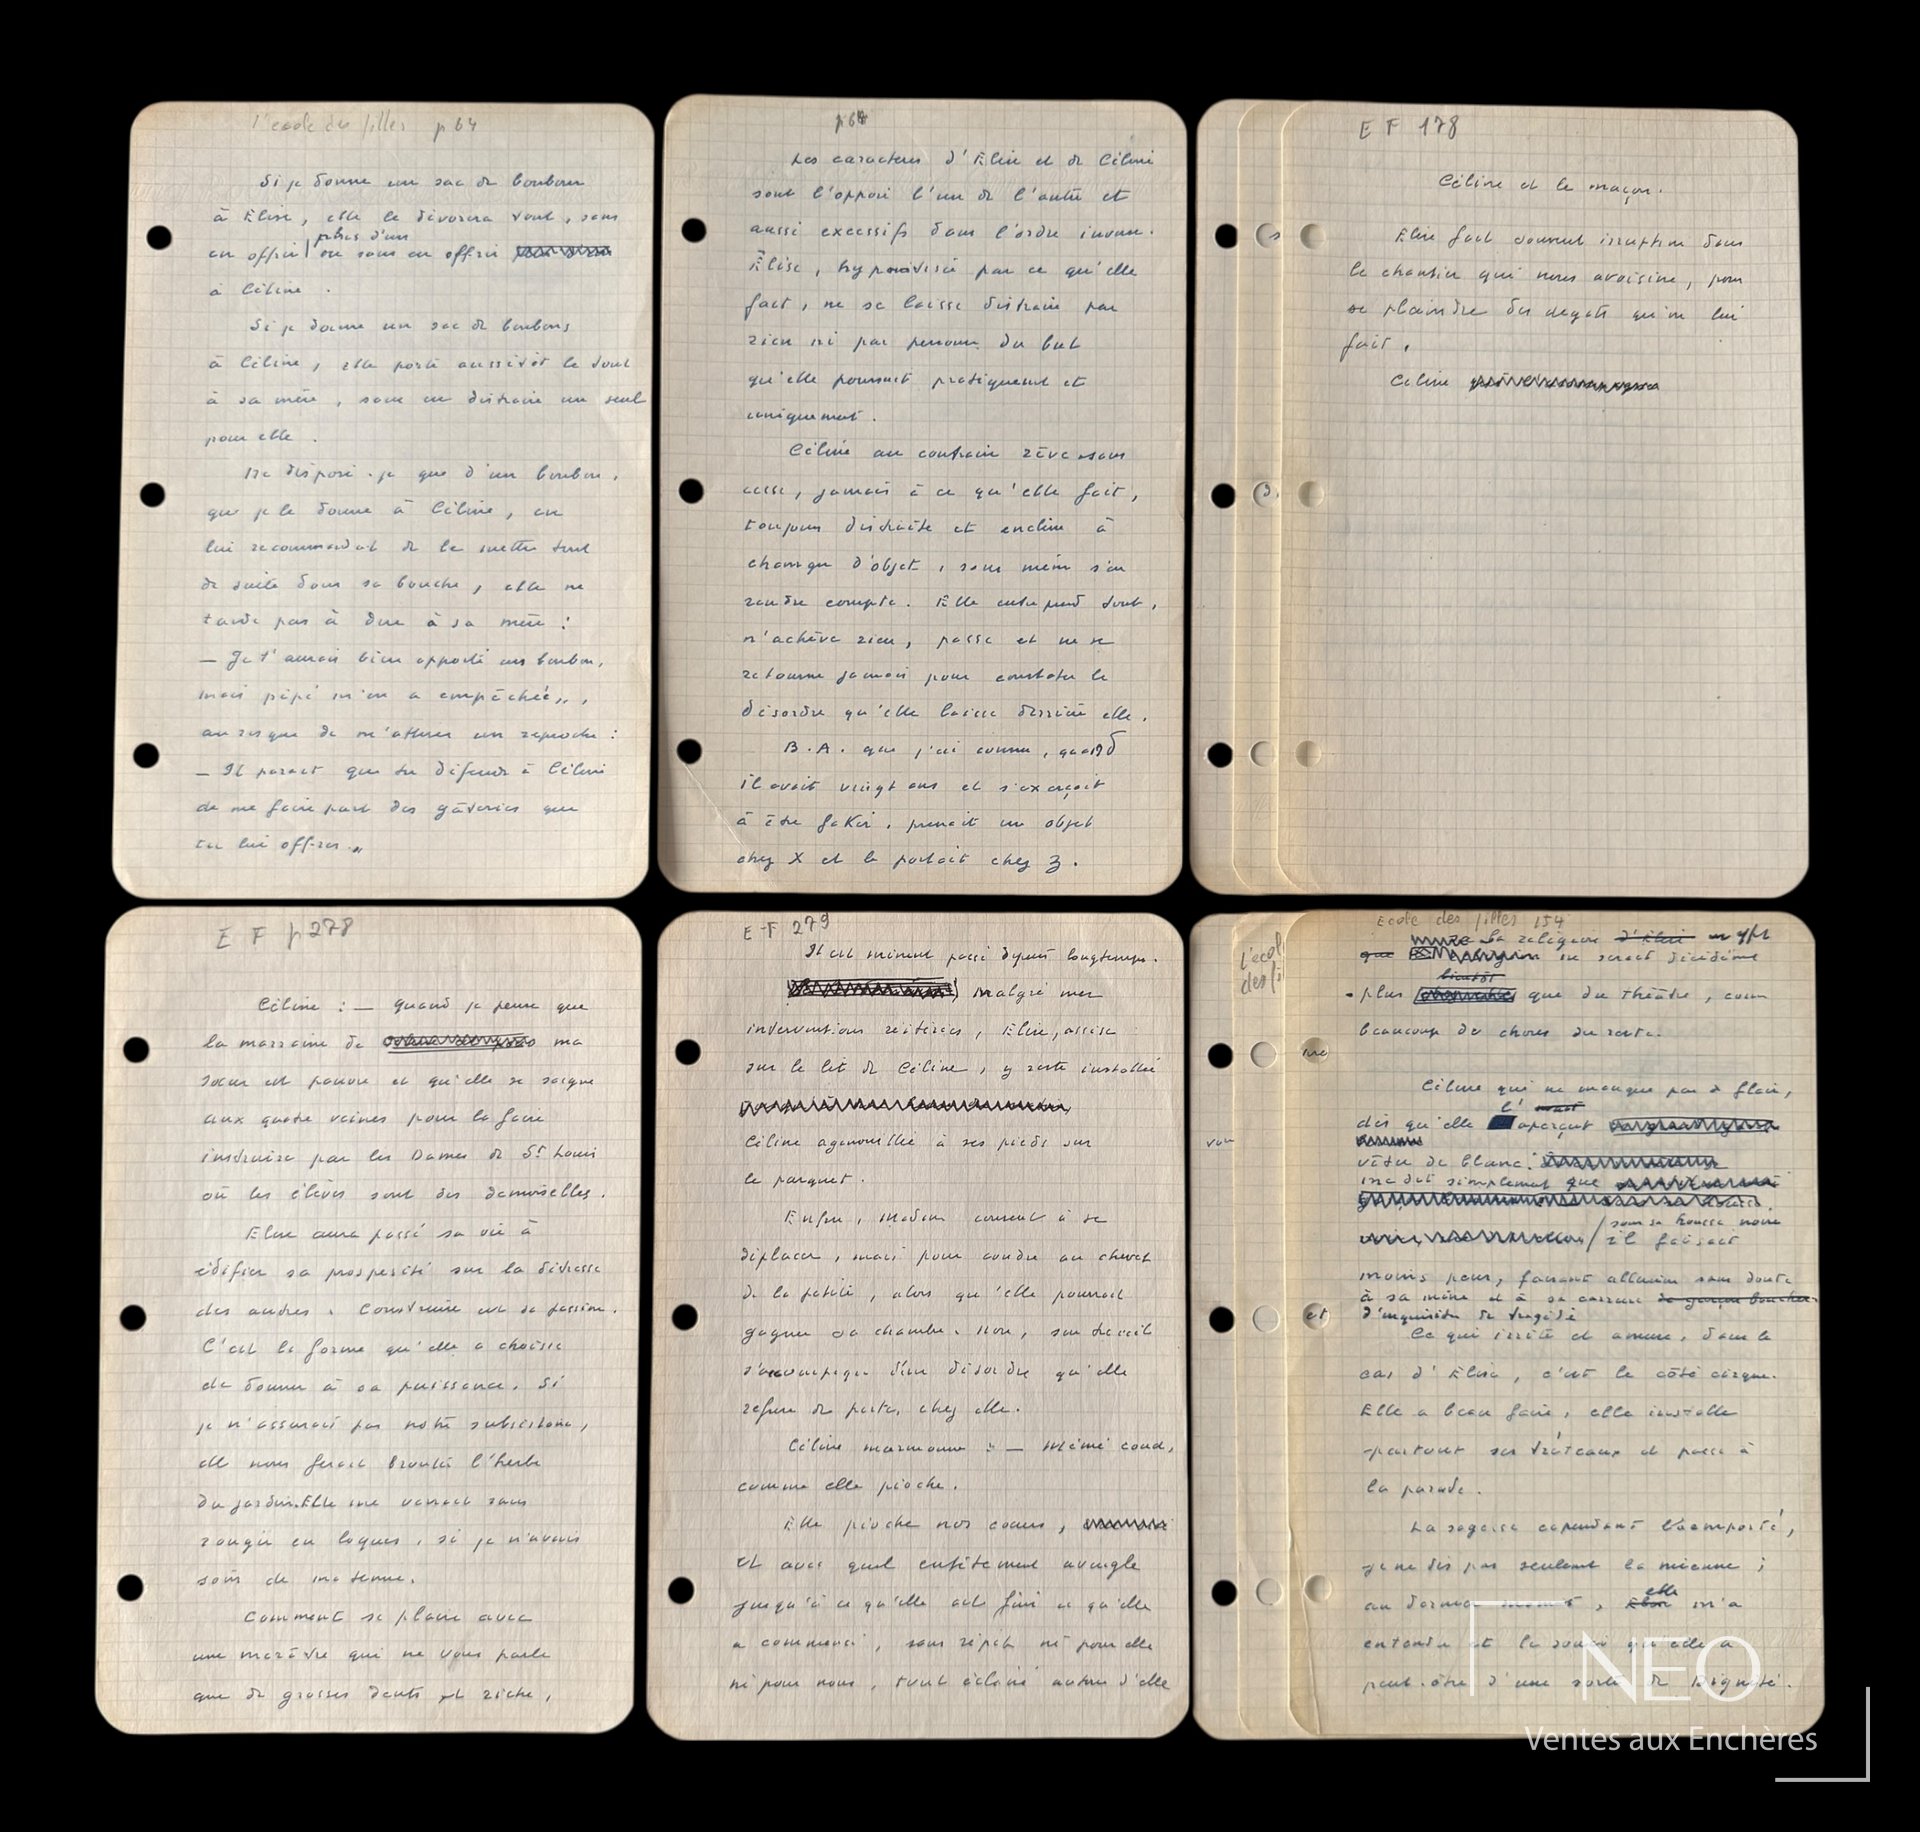 L'école des filles p 64
Si je donne un sac de bonbons
à Elise, elle le dévorera tout, sans
plus d'un
en offrir ou sans en offrir
à Céline.
Si je donne un sac de bonbons
à Céline, elle porte aussitôt le tout
à sa mère, sans en distraire un seul
pour elle.
Ne disposé-je que d'un bonbon,
que je le donne à Céline, en
lui recommandant de le mettre tout
de suite dans sa bouche, elle ne
tarde pas à dire à sa mère :
— Je t'aurais bien apporté un bonbon,
mais pépé m'en a empêchée,
au risque de m'attirer un reproche :
— Il paraît que tu défends à Céline
de me faire part des gâteries que
tu lui offres.
p 64
Les caractères d'Elise et de Céline
sont l'opposé l'un de l'autre et
aussi excessifs dans l'ordre inverse.
Élise, hypnotisée par ce qu'elle
fait, ne se laisse distraire par
rien ni par personne du but
qu'elle poursuit pratiquement et
uniquement.
Céline au contraire rêve sans
cesse, jamais à ce qu'elle fait,
toujours distraite et encline à
changer d'objet, sans même s'en
rendre compte. Elle entreprend tout,
n'achève rien, passe et ne se
retourne jamais pour constater le
désordre qu'elle laisse derrière elle.
B.A. que j'ai connu, quand
il avait vingt ans et s'exerçait
à être fakir, prenait un objet
chez X et le portait chez Z.
E F 178
Céline et le maçon.
Elise fait souvent irruption dans
le chantier qui nous avoisine, pour
se plaindre des dégâts qu'on lui
fait.
Céline
E F p 278
Céline : — quand je pense que
la marraine de ma
sœur est pauvre et qu'elle se saigne
aux quatre veines pour la faire
instruire par les Dames de St Louis
où les élèves sont des demoiselles.
Elise aura passé sa vie à
édifier sa prospérité sur la détresse
des autres. Construire est sa passion.
C'est la forme qu'elle a choisie
de donner à sa puissance. Si
je n'assurais pas notre subsistance,
elle nous ferait brouter l'herbe
du jardin. Elle me verrait sans
rougir en loques, si je n'avais
soin de ma tenue.
Comment se plaire avec
une marâtre qui ne vous parle
que de grosses dents et riche,
E F 279
Il est minuit passé depuis longtemps.
Malgré mes
interventions réitérées, Elise, assise
sur le lit de Céline, y reste installée
Céline agenouillée à ses pieds sur
le parquet.
Enfin, Madame consent à se
déplacer, mais pour coudre au chevet
de la petite, alors qu'elle pourrait
gagner sa chambre. Non, son travail
s'accompagne d'un désordre qu'elle
refuse de porter chez elle.
Céline marmonne : — Mémé coud,
comme elle pioche.
Elle pioche nos cœurs,
et avec quel entêtement aveugle
jusqu'à ce qu'elle ait fini ce qu'elle
a commencé, sans répit ni pour elle
ni pour nous, tout éclairé autour d'elle
L'écol
des fi
vou
Ecole des filles 154
La religion d'Elise
que ne serait décidément
bientôt
plus que du théâtre, comme
beaucoup de choses du reste.
Céline qui ne manque pas de flair,
dès qu'elle l'aperçut
vêtu de blanc,
me dit simplement que
sous sa housse noire
il faisait
moins peur, faisant allusion sans doute
à sa mine et à sa carrure de garçon boucher
d'inquisiteur de tragédie
Ce qui irrite et amuse, dans le
cas d'Elise, c'est le côté cirque.
Elle a beau faire, elle installe
partout ses tréteaux et passe à
la parade.
La sagesse cependant l'a emporté,
je ne dis pas seulement la mienne ;
elle
au dernier moment, Elise m'a
entendu et le souci qu'elle a
peut-être d'une sorte de dignité.
NEO
Ventes aux Enchères